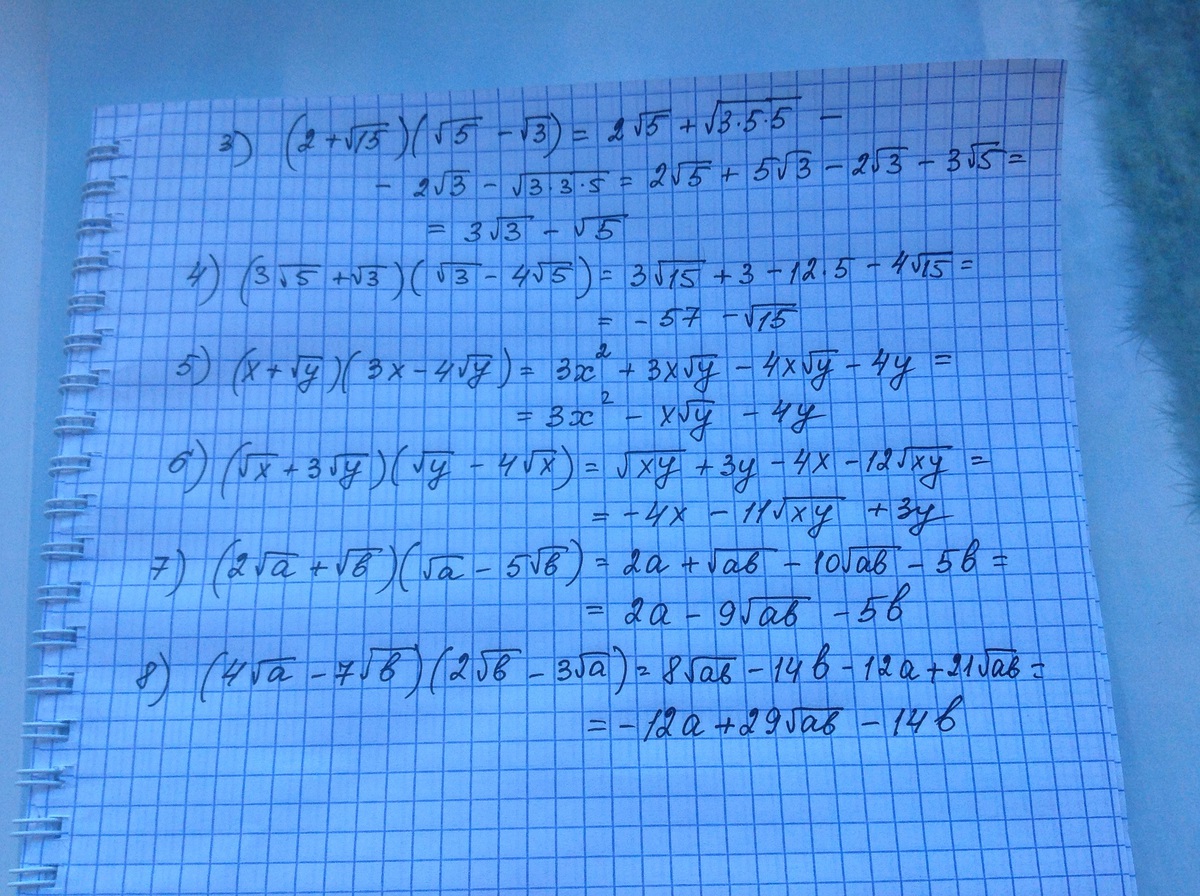 3) (2+√15)(√5 -√3) = 2√5 +√3·5·5 -
- 2√3 - √3·3·5 = 2√5 + 5√3 - 2√3 - 3√5 =
= 3√3 - √5
4) (3√5 +√3)(√3 - 4√5) = 3√15 + 3 - 12·5 - 4√15 =
= - 57 - √15
5) (x+√y)(3x-4√y) = 3x² + 3x√y - 4x√y - 4y =
= 3x² - x√y - 4y
6) (√x + 3√y)(√y - 4√x) = √xy + 3y - 4x - 12√xy =
= -4x - 11√xy + 3y
7) (2√a + √b)(√a - 5√b) = 2a + √ab - 10√ab - 5b =
= 2a - 9√ab - 5b
8) (4√a - 7√b)(2√b - 3√a) = 8√ab - 14b - 12a + 21√ab =
= -12a + 29√ab - 14b